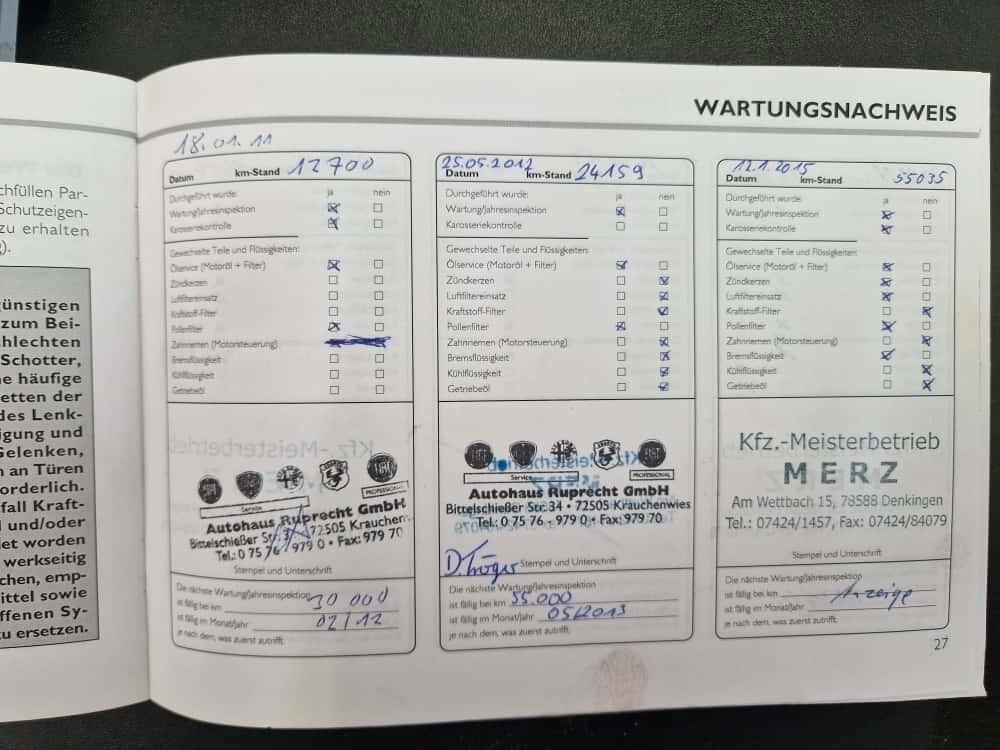 WARTUNGSNACHWEIS
chfüllen Par-
Schutzeigen-
zu erhalten
).
günstigen
zum Bei-
chlechten
Schotter,
e häufige
etten der
des Lenk-
igung und
Gelenken,
n an Türen
orderlich.
fall Kraft-
und/oder
et worden
werkseitig
chen, emp-
ittel sowie
ffenen Sy-
u ersetzen.
18.01.11
Datum km-Stand 12700
Durchgeführt wurde: ja nein
Wartung/Jahresinspektion
Karosseriekontrolle
Gewechselte Teile und Flüssigkeiten:
Ölservice (Motoröl + Filter)
Zündkerzen
Luftfiltereinsatz
Kraftstoff-Filter
Pollenfilter
Zahnriemen (Motorsteuerung)
Bremsflüssigkeit
Kühlflüssigkeit
Getriebeöl
Service
FIAT
PROFESSIONAL
Autohaus Ruprecht GmbH
Bittelschießer Str. 34 • 72505 Krauchen
Tel.: 0 75 76 - 979 0 • Fax: 979 70
Stempel und Unterschrift
Die nächste Wartung/Jahresinspektion
ist fällig bei km 30 000
ist fällig im Monat/Jahr 02/12
je nach dem, was zuerst zutrifft.
25.05.2012
Datum km-Stand 24159
Durchgeführt wurde: ja nein
Wartung/Jahresinspektion
Karosseriekontrolle
Gewechselte Teile und Flüssigkeiten:
Ölservice (Motoröl + Filter)
Zündkerzen
Luftfiltereinsatz
Kraftstoff-Filter
Pollenfilter
Zahnriemen (Motorsteuerung)
Bremsflüssigkeit
Kühlflüssigkeit
Getriebeöl
Service
FIAT
PROFESSIONAL
Autohaus Ruprecht GmbH
Bittelschießer Str. 34 • 72505 Krauchenwies
Tel.: 0 75 76 - 979 0 • Fax: 979 70
D. Tröger Stempel und Unterschrift
Die nächste Wartung/Jahresinspektion
ist fällig bei km 55.000
ist fällig im Monat/Jahr 05/2013
je nach dem, was zuerst zutrifft.
12.1.2015
Datum km-Stand 55035
Durchgeführt wurde: ja nein
Wartung/Jahresinspektion
Karosseriekontrolle
Gewechselte Teile und Flüssigkeiten:
Ölservice (Motoröl + Filter)
Zündkerzen
Luftfiltereinsatz
Kraftstoff-Filter
Pollenfilter
Zahnriemen (Motorsteuerung)
Bremsflüssigkeit
Kühlflüssigkeit
Getriebeöl
Kfz.-Meisterbetrieb
MERZ
Am Wettbach 15, 78588 Denkingen
Tel.: 07424/1457, Fax: 07424/84079
Stempel und Unterschrift
Die nächste Wartung/Jahresinspektion
ist fällig bei km Anzeige
ist fällig im Monat/Jahr
je nach dem, was zuerst zutrifft.
27